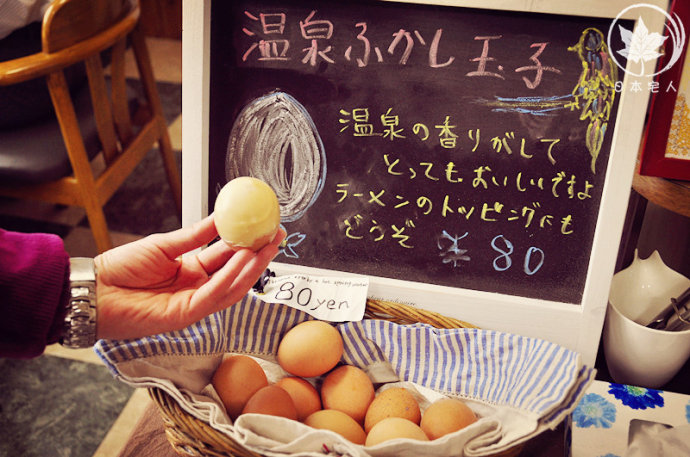 温泉ふかし玉子
温泉の香りがして
とってもおいしいですよ
ラーメンのトッピングにも
どうぞ ¥80
80yen
日本宅人